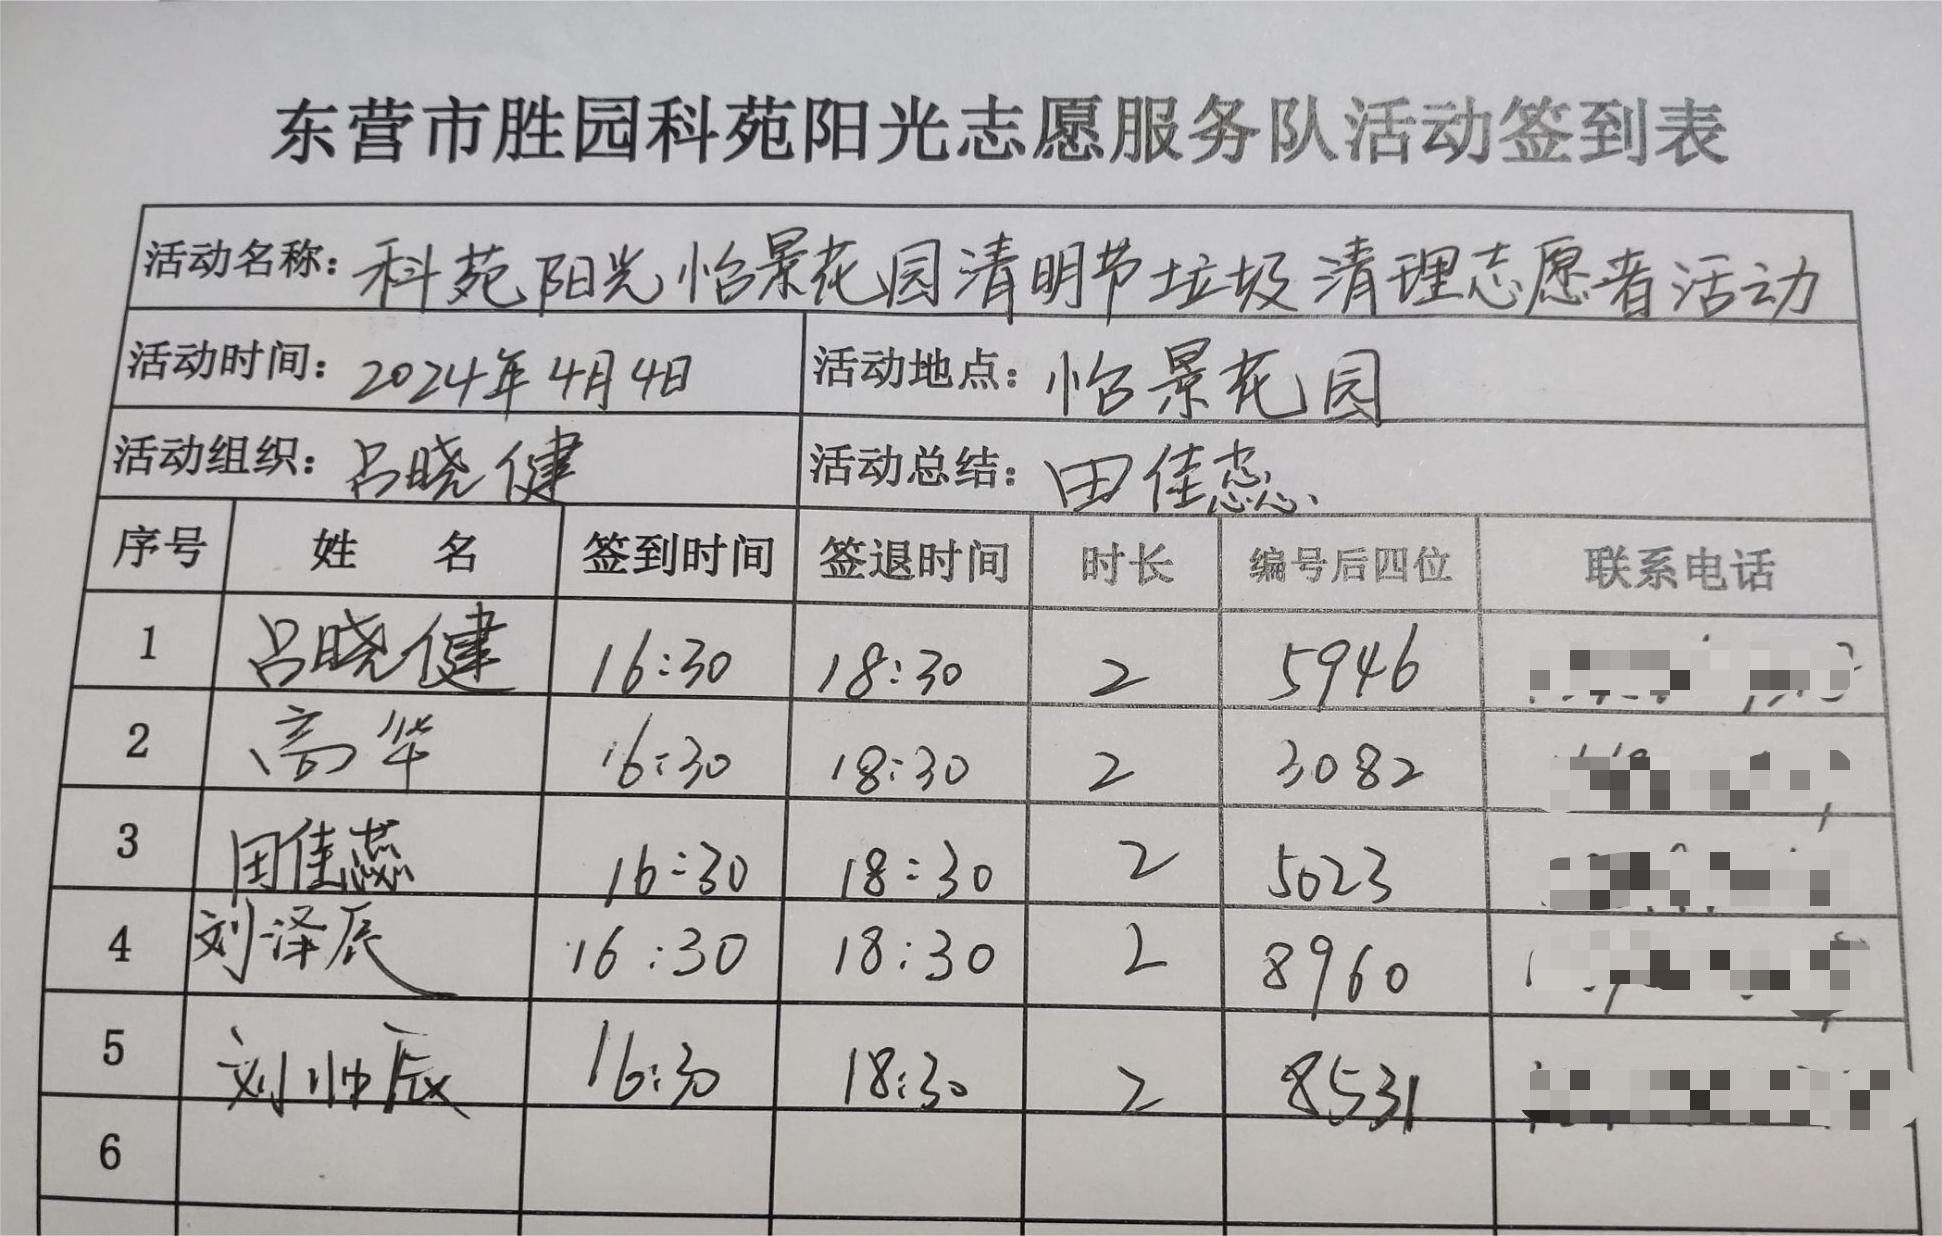 东营市胜园科苑阳光志愿服务队活动签到表
活动名称：科苑阳光怡景花园清明节垃圾清理志愿者活动
活动时间：2024年4月4日 活动地点：怡景花园
活动组织：吕晓健 活动总结：田佳蕊
序号 姓名 签到时间 签退时间 时长 编号后四位 联系电话
1 吕晓健 16:30 18:30 2 5946
2 高华 16:30 18:30 2 3082
3 田佳蕊 16:30 18:30 2 5023
4 刘泽辰 16:30 18:30 2 8960
5 刘帅辰 16:30 18:30 2 8531
6